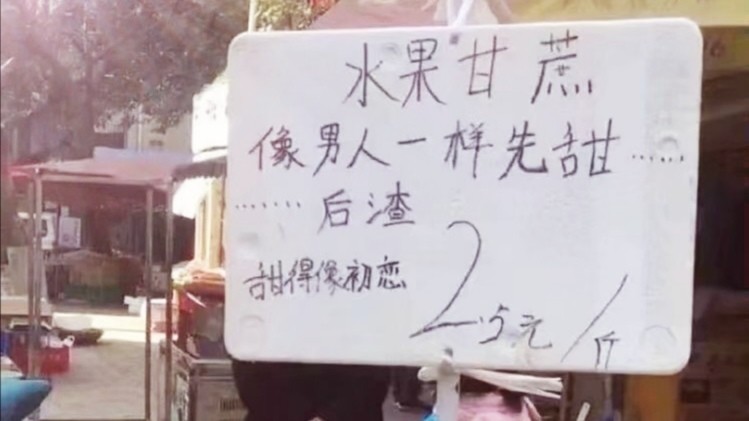 水果甘蔗
像男人一样先甜……
……后渣
甜得像初恋 2.5元/斤